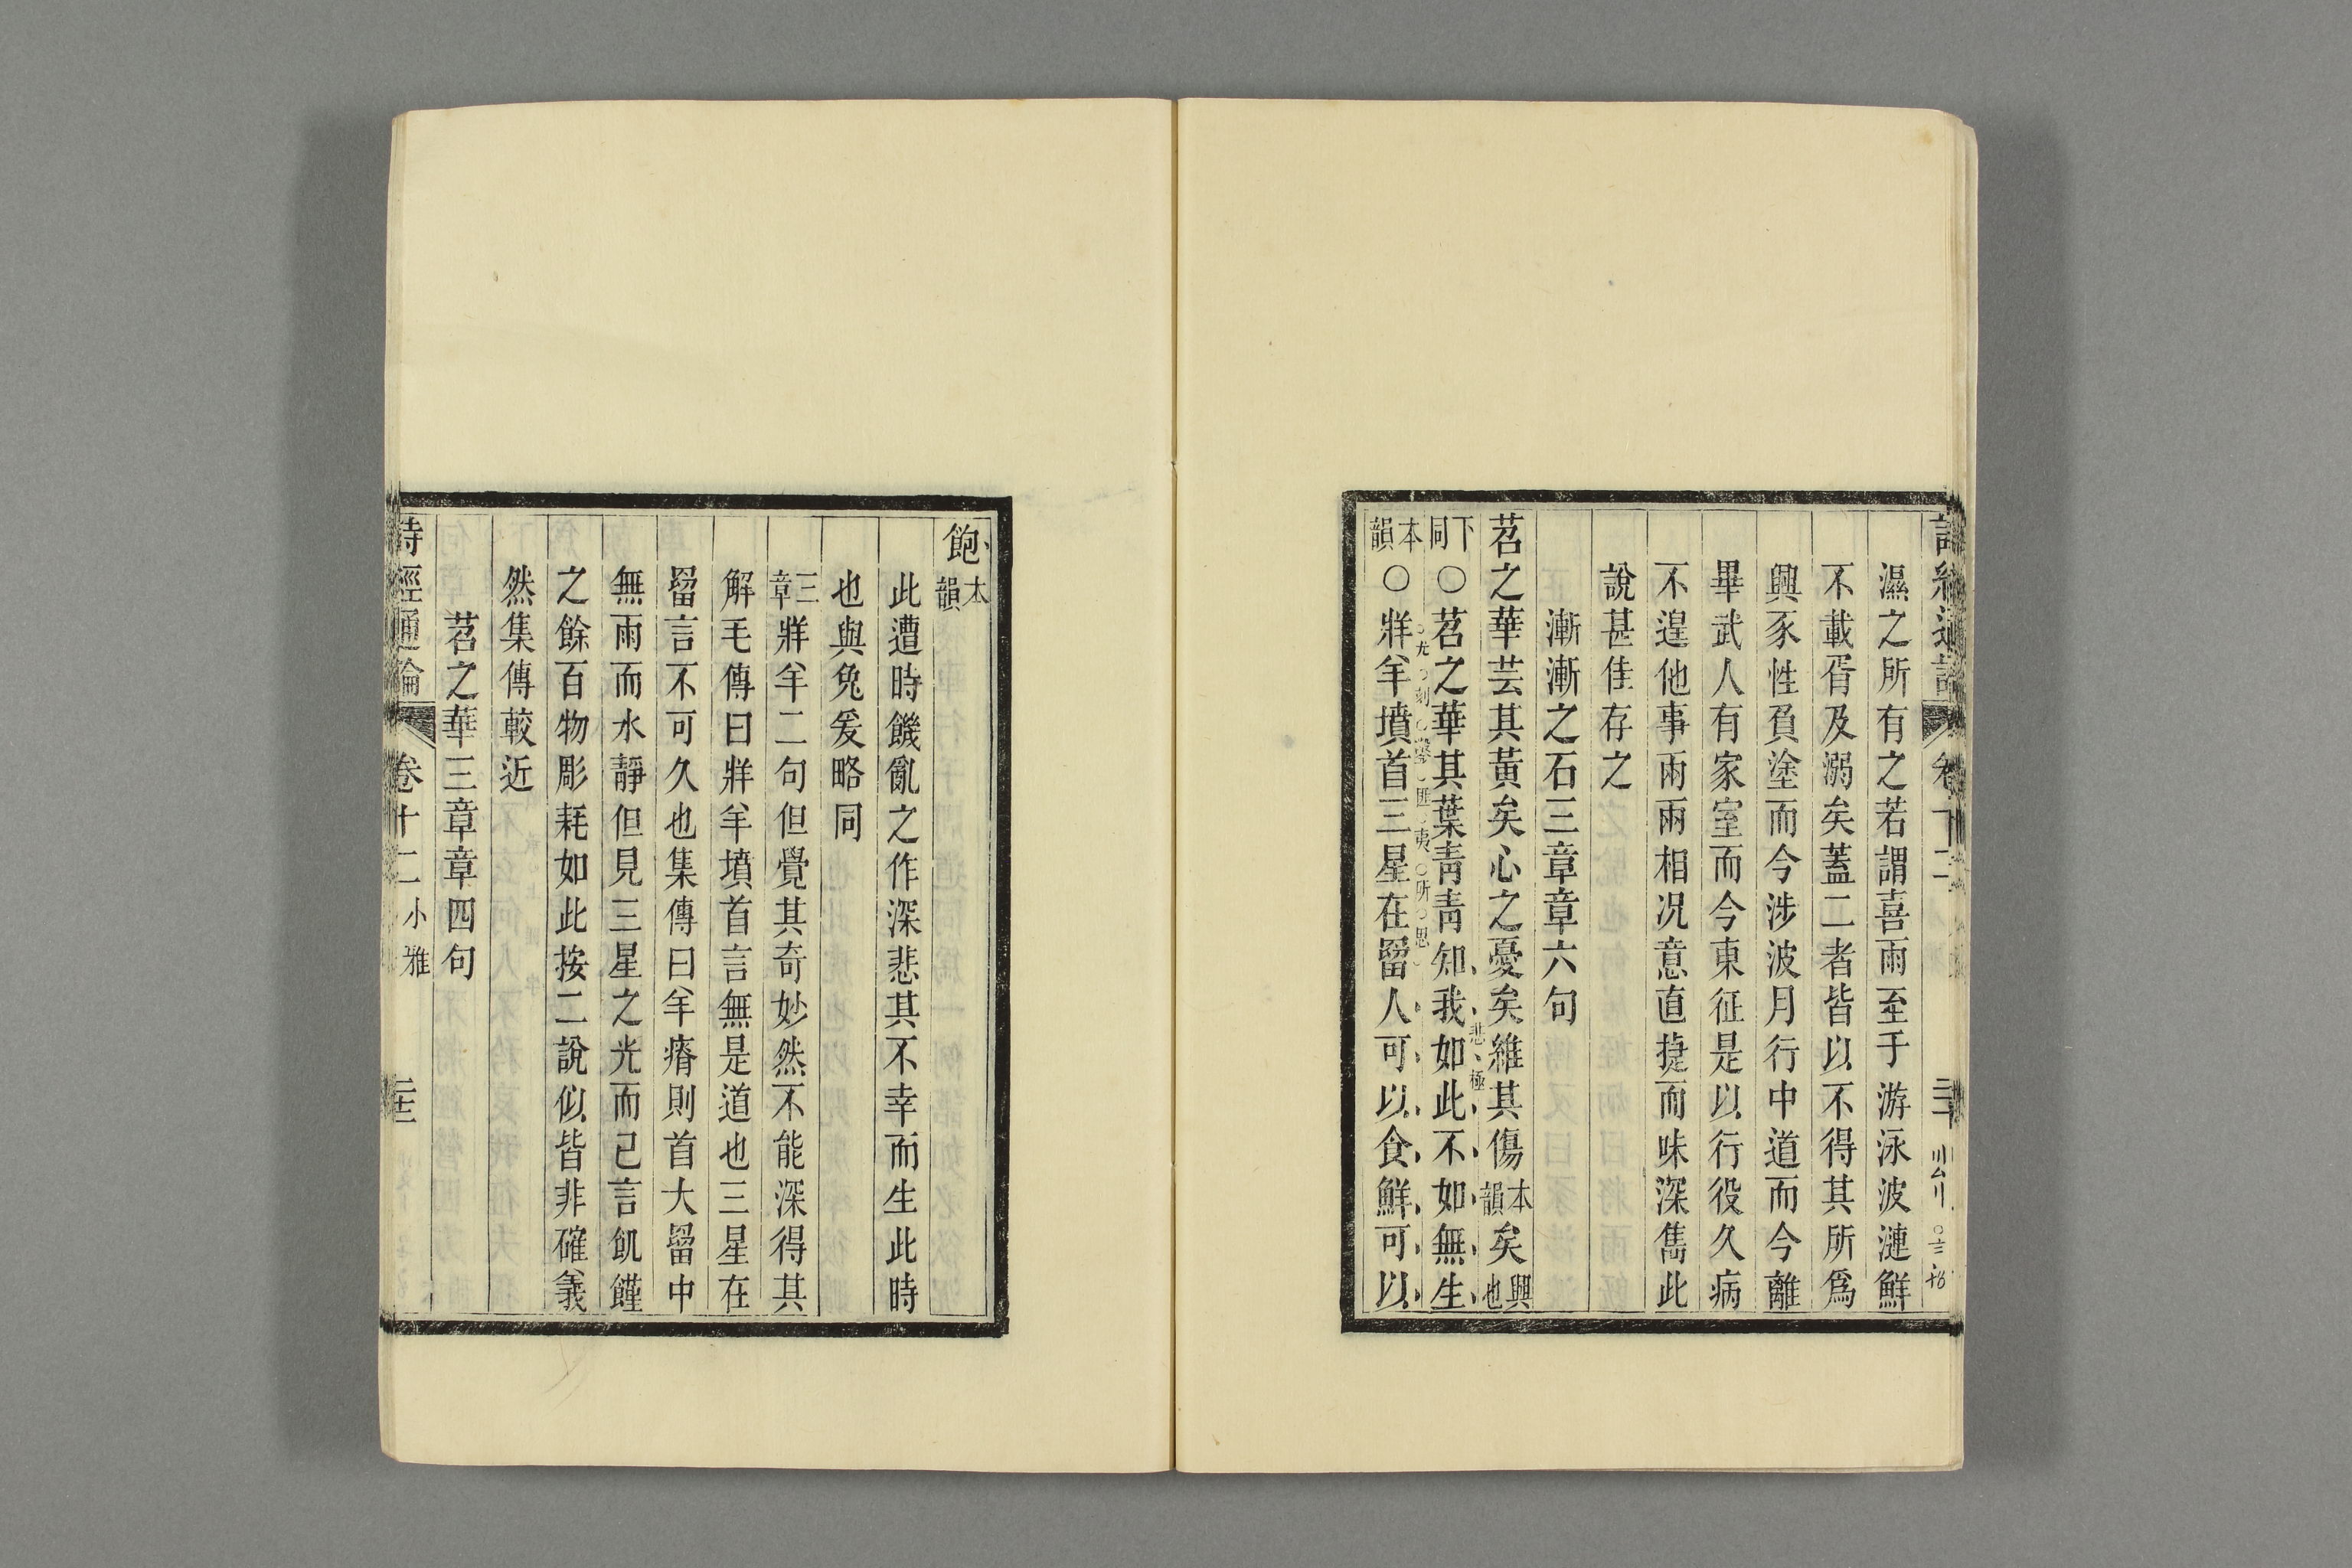 濕之所有之若謂喜雨至于游泳波漣鮮
不載胥及溺矣蓋二者皆以不得其所爲
興豕性負塗而今涉波月行中道而今離
畢武人有家室而今東征是以行役久病
不遑他事兩兩相况意直捷而味深雋此
說甚佳存之
漸漸之石三章章六句
苕之華芸其黃矣心之憂矣維其傷本韻矣興也
下同○苕之華其葉靑靑知我如此不如無生
本韻○牂羊墳首三星在罶人可以食鮮可以
飽本韻
此遭時饑亂之作深悲其不幸而生此時
也與兔爰略同
三章牂羊二句但覺其奇妙然不能深得其
解毛傳曰牂羊墳首言無是道也三星在
罶言不可久也集傳曰羊瘠則首大罶中
無雨而水靜但見三星之光而已言飢饉
之餘百物彫耗如此按二說似皆非確義
然集傳較近
苕之華三章章四句
詩經通論 卷十二 小雅